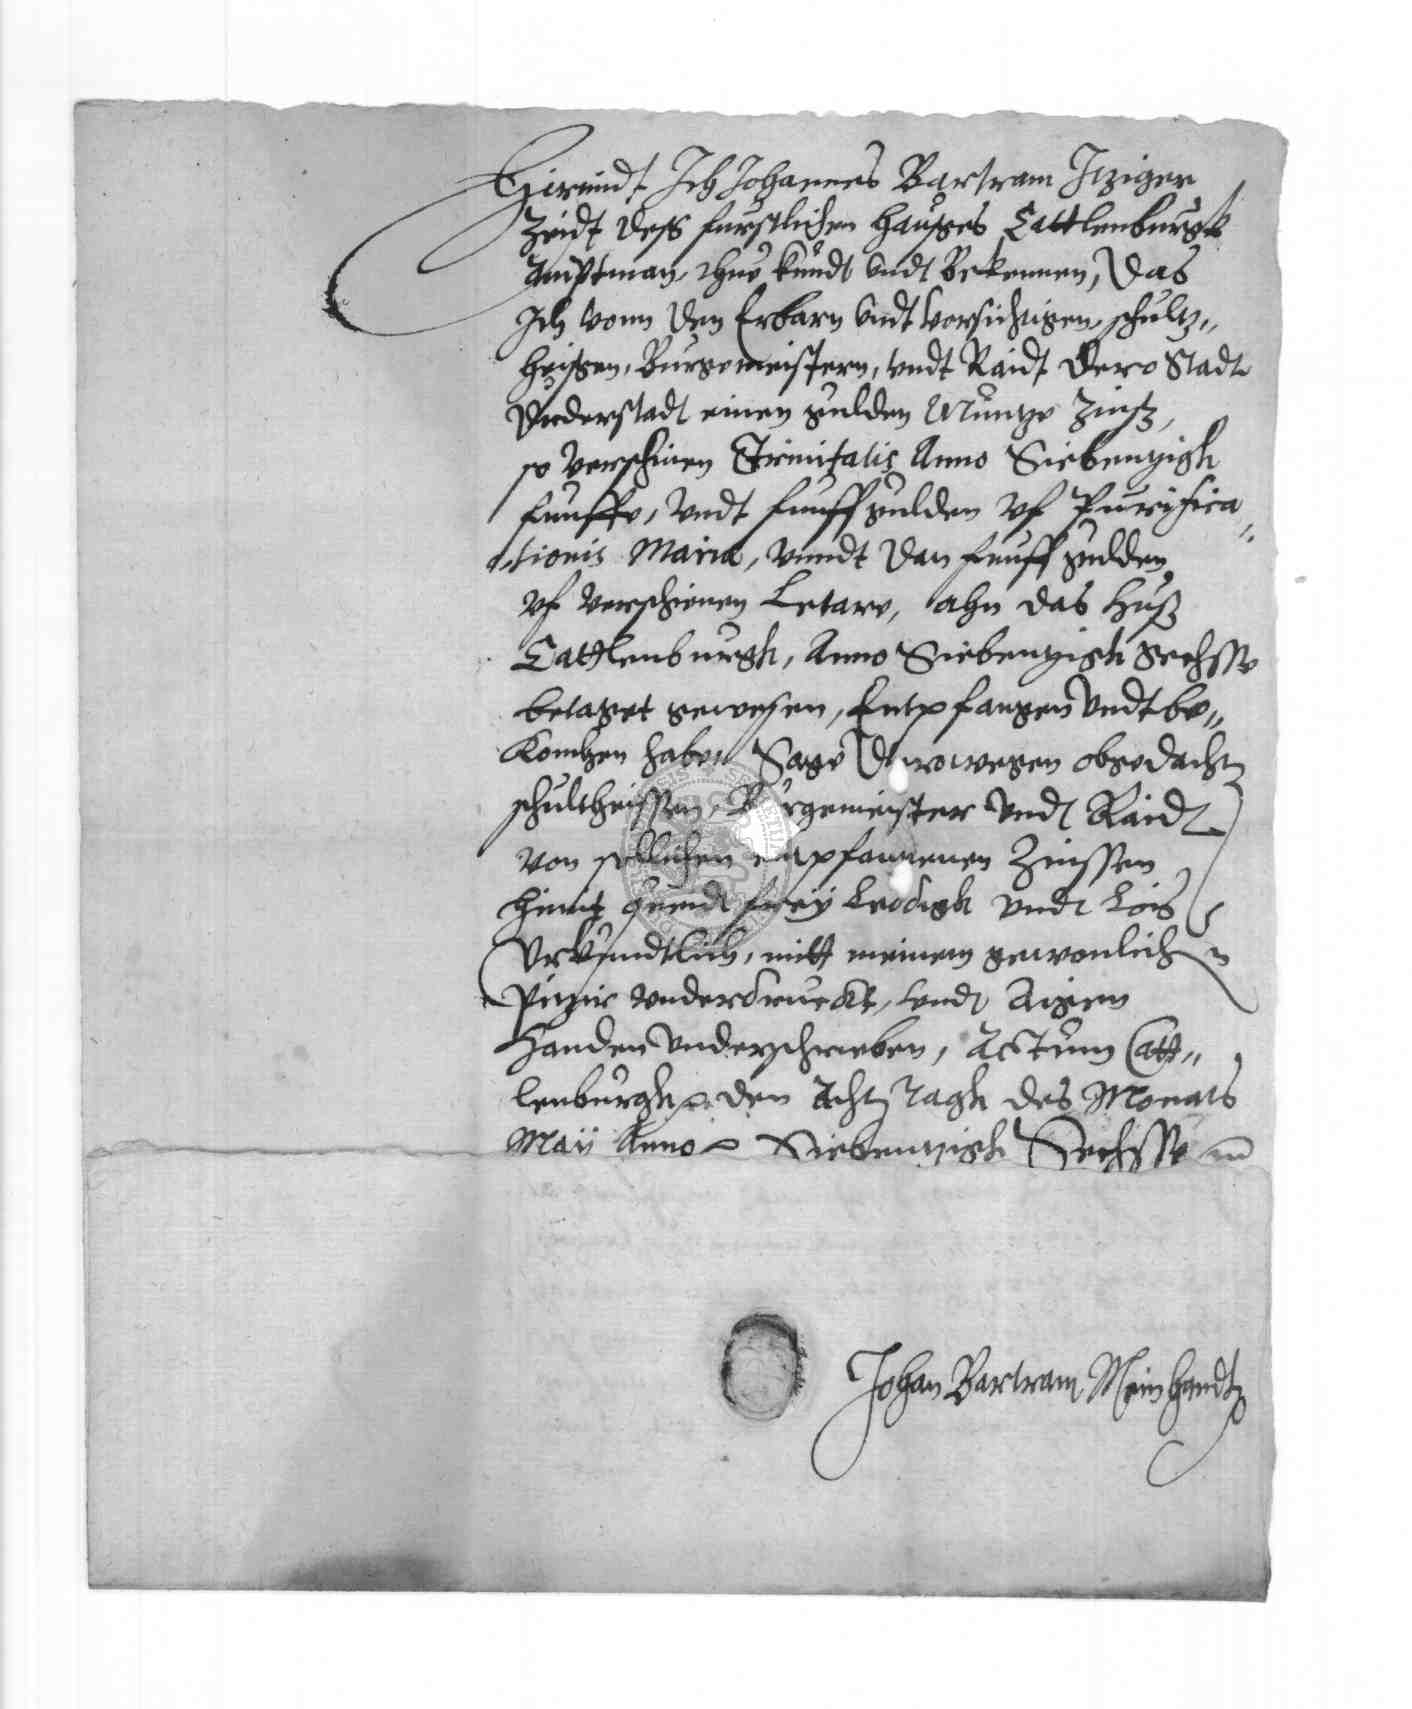 Hirmidt Ich Johannes Bartram Itziger
Zeidt deß furstlichen Haußes Cattlenburgk
Amptman, thue kundt undt Bekennen, Das
Ich vonn den Erbarn undt vorsichtigen, schultz„
heißen, Burgemeistern, undt Raidt dero Stadt
Duderstadt einen gulden Muntze Zinß,
so verschinen Trinitatis Anno Siebentzigk
funffe, undt funff gulden uf Purifica„
„tionis Maria, unndt dan funff gulden
uf verschienen Letare, ahn das Huß
Cattlenburgk, Anno Siebentzigk Sechsse
betaget gewesen, Entpfangen undt be„
Komhen habe, Sage Derowegen obgedacht
schultheissen, Burgemeister undt Raidt
von sollichen entpfangenen Zinssen
hirmit frey Leddigk undt Lois
Urkundtlich, mitt meinem gewonlichen
Pitzir underdruckt, undt Aigen
Handen underschrieben, Actum Catt„
lenburgk den Acht Tagk des Monats
Maÿ Anno Siebentzigk Sechsse
Johan Bartram Mein handt